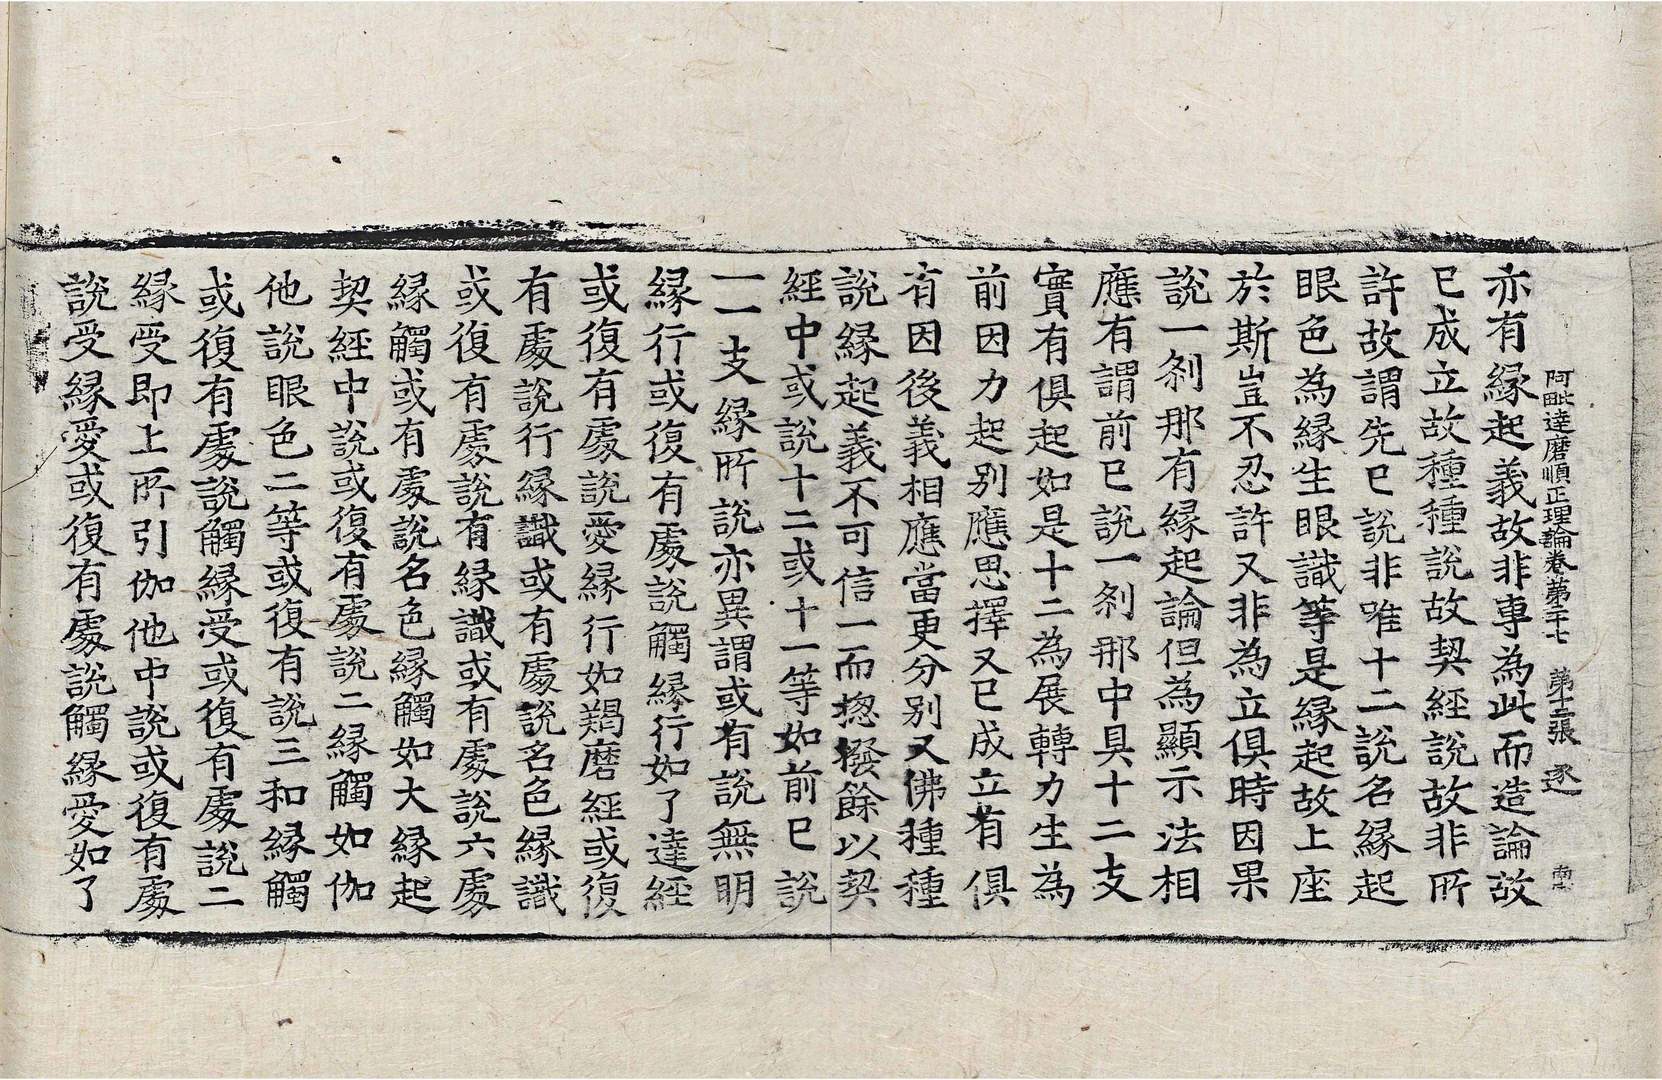 阿毗達磨順正理論卷第二十七 第 張 逐
亦有緣起義故非專為此而造論故
已成立故種種說故契經說故非所
許故謂先已說非唯十二說名緣起
眼色為緣生眼識等是緣起故上座
於斯豈不忍許又非為立俱時因果
說一剎那有緣起論但為顯示法相
應有謂前已說一剎那中具十二支
實有俱起如是十二為展轉力生為
前因力起別應思擇又已成立有俱
有因後義相應當更分別又佛種種
說緣起義不可信一而揔撥餘以契
經中或說十二或十一等如前已說
一一支緣所說亦異謂或有說無明
緣行或復有處說觸緣行如了達經
或復有處說愛緣行如羯磨經或復
有處說行緣識或有處說名色緣識
或復有處說有緣識或有處說六處
緣觸或有處說名色緣觸如大緣起
契經中說或復有處說二緣觸如伽
他說眼色二等或復有說三和緣觸
或復有處說觸緣受或復有處說二
緣受即上所引伽他中說或復有處
說受緣愛或復有處說觸緣愛如了